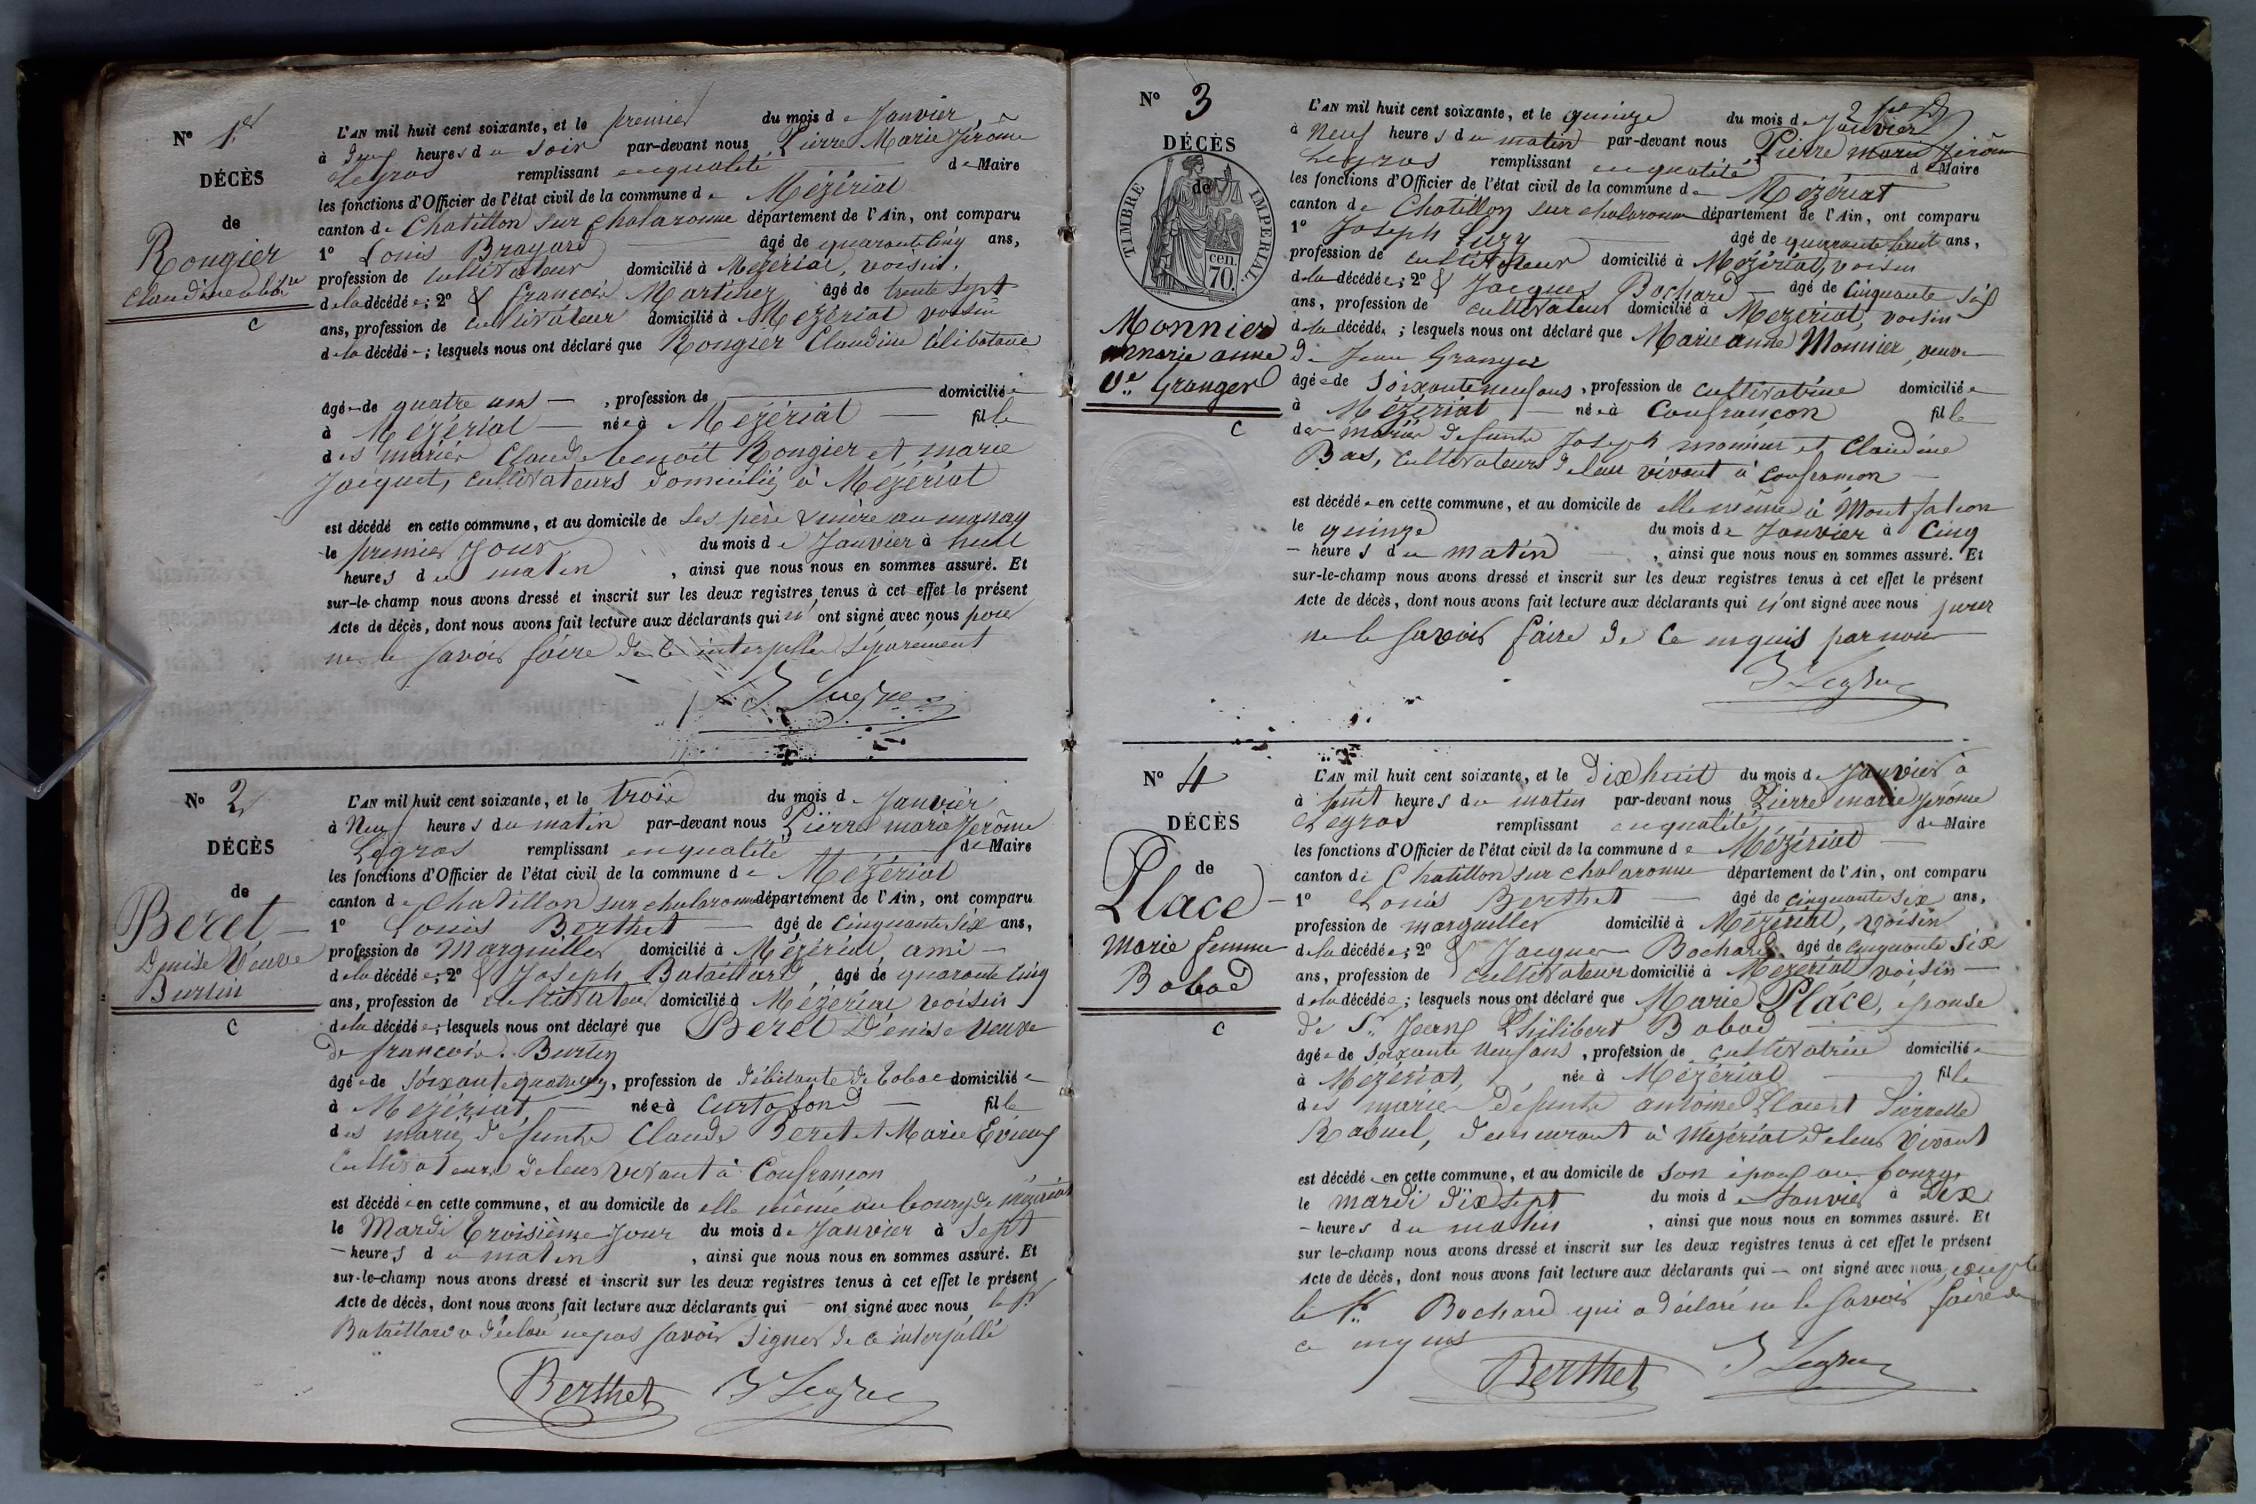 No 1er
DÉCÈS
de
Rougier
Claudine célibre
C
L'AN mil huit cent soixante, et le premier du mois de Janvier
à deux heures du soir par-devant nous Pierre Marie Jérôme
Legros remplissant en qualité de Maire
les fonctions d'Officier de l'état civil de la commune de Mézériat
canton de Chatillon sur chalaronne département de l'Ain, ont comparu
1o Louis Brayard âgé de quarante cinq ans,
profession de cultivateur domicilié à Mézériat, voisin.
de la décédée; 2o & françois Martinez âgé de trente sept
ans, profession de cultivateur domicilié à Mézériat voisin
de la décédée; lesquels nous ont déclaré que Rougier Claudine Célibataire
âgée de quatre ans — , profession de — domiciliée
à Mézériat — née à Mézériat — fille
des mariés Claude benoit Rougier et marie
Jacquet, cultivateurs domiciliés à Mézériat
est décédé en cette commune, et au domicile de ses père & mère au
le premier Jour du mois de Janvier à huit
heures du matin , ainsi que nous nous en sommes assuré. Et
sur-le-champ nous avons dressé et inscrit sur les deux registres tenus à cet effet le présent
Acte de décès, dont nous avons fait lecture aux déclarants qui n'ont signé avec nous pour
ne le savoir faire de ce interpellés séparement
J Legros
No 2
DÉCÈS
de
Beret —
Denise Veuve
Burtin
C
L'AN mil huit cent soixante, et le trois du mois de Janvier
à Neuf heures du matin par-devant nous Pierre marie Jerôme
Legros remplissant en qualité de Maire
les fonctions d'Officier de l'état civil de la commune de Mézériat
canton de Chatillon sur chalaronne département de l'Ain, ont comparu
1o Louis Berthet — âgé de Cinquante Six ans,
profession de Marguiller domicilié à Mézériat, ami —
de la décédée; 2o & Joseph Bataillard, âgé de quarante cinq
ans, profession de cultivateur domicilié à Mézériat voisin
de la décédée; lesquels nous ont déclaré que Beret Denise Veuve
de françois Burtin
âgée de soixante quatre ans, profession de débitante de Tabac domiciliée
à Mézériat, — née à Curtafond — fille
des mariés défunts Claude Beret et Marie Evieux
Cultivateurs de leur vivant à Confrançon
est décédée en cette commune, et au domicile de elle même au bourg de mézériat
le Mardi troisième Jour du mois de Janvier à Sept
— heures du matin , ainsi que nous nous en sommes assuré. Et
sur-le-champ nous avons dressé et inscrit sur les deux registres tenus à cet effet le présent
Acte de décès, dont nous avons fait lecture aux déclarants qui — ont signé avec nous, le Sr
Bataillard a déclaré ne pas savoir Signer de ce interpellé
Berthet J Legros
No 3
DÉCÈS
de
TIMBRE IMPERIAL
cen. 70.
Monnier
marie anne
Ve Granger
C
L'AN mil huit cent soixante, et le quinze du mois de Janvier
à Neuf heures du matin par-devant nous Pierre marie Jerôme
Legros remplissant en qualité de Maire
les fonctions d'Officier de l'état civil de la commune de Mézériat
canton de Chatillon sur chalaronne département de l'Ain, ont comparu
1o Joseph Luzy âgé de quarante huit ans,
profession de cultivateur domicilié à Mézériat, voisin
de la décédée; 2o & Jacques Bochard — âgé de Cinquante six
ans, profession de cultivateur domicilié à Mézériat, voisin
de la décédée; lesquels nous ont déclaré que Marie anne Monnier, veuve
de Jean Granger
âgée de soixante neuf ans, profession de cultivatrice domiciliée
à Mézériat, — née à Confrançon fille
des mariés défunts Joseph monnier et Claudine
Bas, cultivateurs de leur vivant à Confrançon —
est décédée en cette commune, et au domicile de elle même à Montfalcon
le quinze du mois de Janvier à Cinq
— heures du matin , ainsi que nous nous en sommes assuré. Et
sur-le-champ nous avons dressé et inscrit sur les deux registres tenus à cet effet le présent
Acte de décès, dont nous avons fait lecture aux déclarants qui n'ont signé avec nous pour
ne le savoir faire de ce enquis par nous
J Legros
No 4
DÉCÈS
de
Place —
Marie femme
Bobad
C
L'AN mil huit cent soixante, et le Dix huit du mois de Janvier à
à huit heures du matin par-devant nous Pierre marie Jerôme
Legros remplissant en qualité de Maire
les fonctions d'Officier de l'état civil de la commune de Mézériat —
canton de Chatillon sur chalaronne département de l'Ain, ont comparu
1o Louis Berthet — âgé de cinquante six ans,
profession de marguiller domicilié à Mézériat, voisin
de la décédée; 2o & Jacques Bochard âgé de Cinquante Six
ans, profession de cultivateur domicilié à Mézériat voisin —
de la décédée; lesquels nous ont déclaré que Marie Place, épouse
de Sr Jean Philibert Bobad —
âgée de soixante Neuf ans, profession de cultivatrice domiciliée
à Mézériat, née à Mézériat — fille
des mariés défunts antoine Place et Pierrette
Rabuel, demeurant à Mézériat de leur vivant
est décédée en cette commune, et au domicile de son époux au bourg
le mardi dix sept du mois de Janvier à Dix
— heures du matin , ainsi que nous nous en sommes assuré. Et
sur le-champ nous avons dressé et inscrit sur les deux registres tenus à cet effet le présent
Acte de décès, dont nous avons fait lecture aux déclarants qui — ont signé avec nous, excepté
le Sr Bochard qui a déclaré ne le savoir faire de
ce enquis
Berthet J Legros